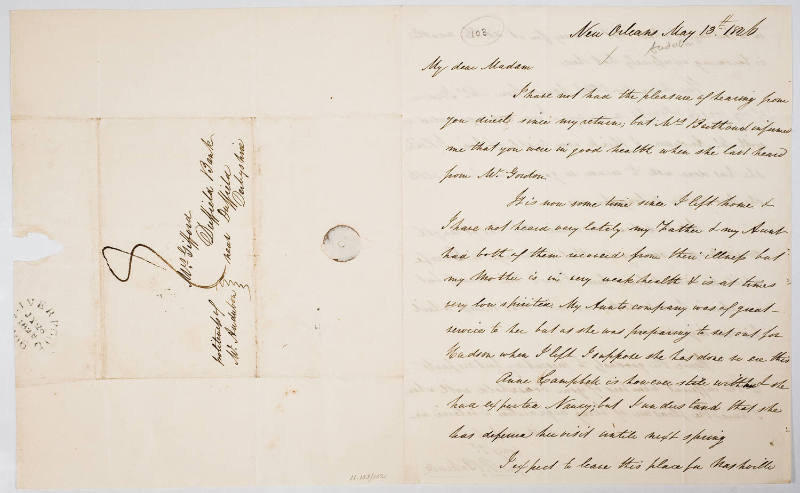 108
New Orleans May 13th 1826
Audubon
My dear Madam
I have not had the pleasure of hearing from
you direct since my return; but Mrs Berthoud informs
me that you were in good health when she last heard
from Mr. Gordon.
It is now some time since I left home &
I have not heard very lately, my Father & my Aunt
had both of them recovered from their illness but
my Mother is in very weak health & is at times
very low spirited My Aunts company was of great
service to her but as she was preparing to set out for
Hudson when I left I suppose she has done so ere this
Anne Campbell is however still with & she
had expected Nancy; but I understand that she
has deferred her visit untill next spring
I expect to leave this place for Nashville
Mrs Gifford
Duffield Bank
near Duffield
Derbyshire
politeness of
Mr. Audubon
LIVERPOOL